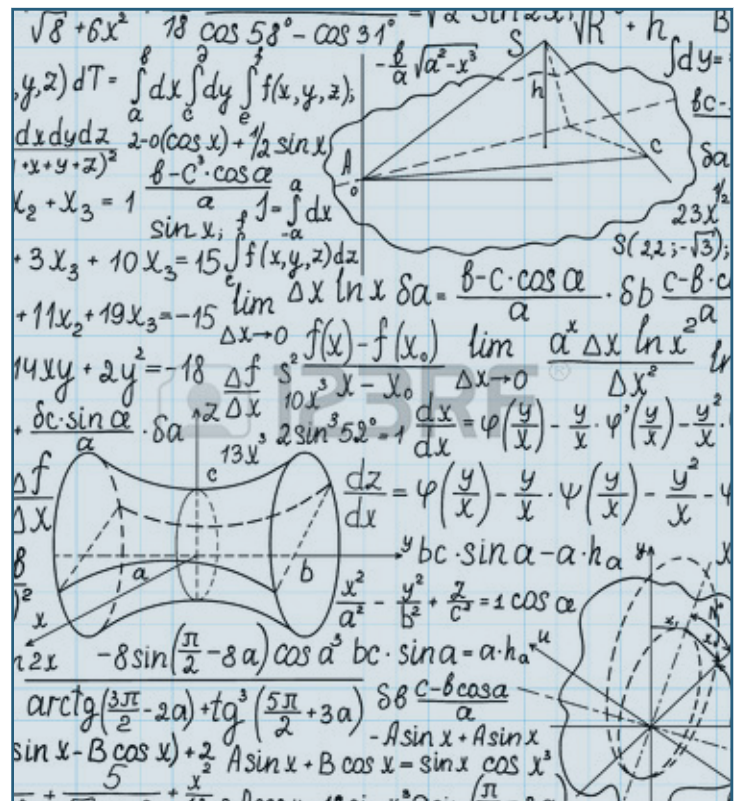 √8 + 6x² 18 cos 58° - cos 31° = √2 sin 2x; √R + h B
-b/a √(a² - x³) S ∫dy =
,y,z) dT = ∫ₐᵇ dx ∫꜀ᵈ dy ∫ₑᶠ f(x,y,z); h bc-
dxdydz 2-0(cos x) + 1/2 sin x
+x+y+z)² (b - C³·cos α)/a A C δa
x₂ + x₃ = 1 J = ∫₋ₐᵃ dx 0 23x^(1/2)
sin x; S(2,2; -√3);
+ 3x₃ + 10x₃ = 15 ∫ₑᶠ f(x,y,z)dz
lim Δx→0 Δx ln x δa = (b - c·cos α)/a · δb
+ 11x₂ + 19x₃ = -15
(f(x) - f(x₀))/(x - x₀) lim Δx→0 (aˣ Δx ln x²)/Δx²
14xy + 2y² = -18 Δf/Δx s² 10x³
123RF®
+ (δc·sin α)/a · δa z 13x³ 2sin³52° = 1 dx/dx = φ(y/x) - y/x · φ'(y/x) - y²/x
Δf/Δx c dz/dx = φ(y/x) - y/x · ψ(y/x) - y²/x - 4
a b y bc·sin a - a·hₐ y x
x x²/a² - y²/b² + z/c² = 1 cos α
2x -8sin(π/2 - 8a) cos a³ bc·sin a = a·hₐ u
arctg(3π/2 - 2a) + tg³(5π/2 + 3a) δB (c - b cos a)/a
-A sin x + A sin x
sin x - B cos x) + 2 A sin x + B cos x = sin x cos x³
5